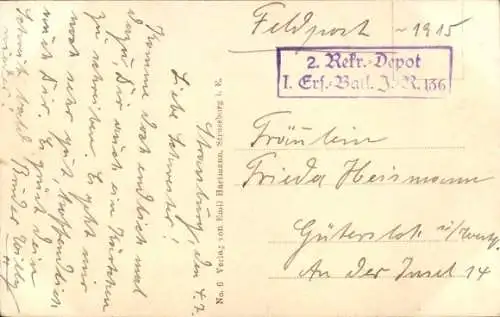 Feldpost ~ 1915
2. Rekr.-Depot
I. Ers.-Batl. J.-R. 136
Fräulein
Frieda Heismann
Gütersloh i/Westf.
An der Insel 14
No. 6 Verlag von Emil Hartmann, Strassburg i. E.
Strassburg, den 4.7.
Liebe Schwester!
Komme doch endlich mal
dazu, Dir auch ein Kärtchen
zu schreiben. Es geht mir
noch sehr gut, hoffentlich
auch Dir. Es grüßt Dein
Bruder Willy
Schreib bald
wieder!